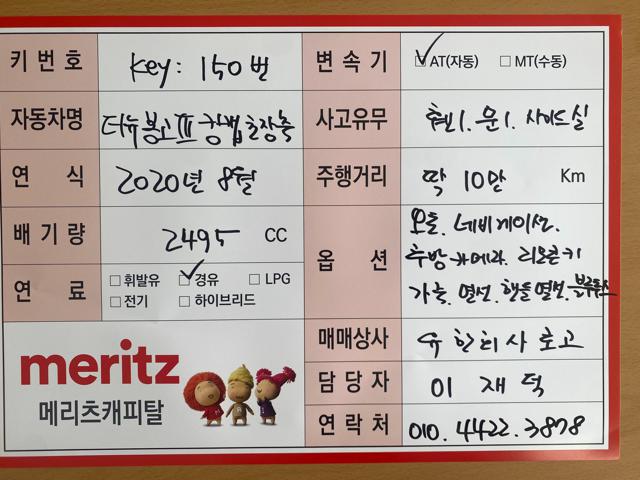 키번호 Key: 150번
변속기 ☑ AT(자동) ☐ MT(수동)
자동차명 더뉴봉고Ⅲ 킹캡 초장축
사고유무 휀1. 문1. 사이드실
연식 2020년 8월
주행거리 딱 10만 Km
배기량 2495 CC
옵션 오토. 네비게이션.
후방카메라. 리모컨키
가죽. 열선. 핸들열선. 블루투스
연료 ☐ 휘발유 ☑ 경유 ☐ LPG
☐ 전기 ☐ 하이브리드
meritz
메리츠캐피탈
매매상사 유한회사 로고
담당자 이재덕
연락처 010.4422.3878